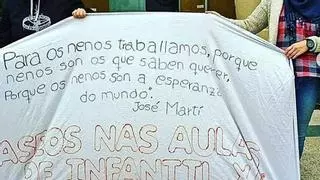 Para os nenos traballamos, porque
nenos son os que saben querer,
Porque os nenos son a esperanza
do mundo".
José Martí
ASEOS NAS AULA
DE INFANTIL